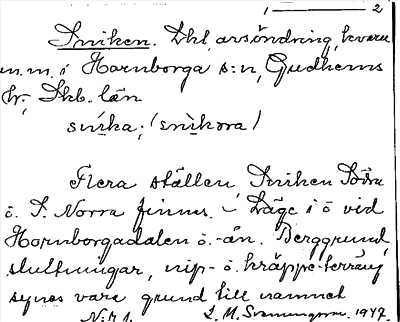 1 — 2
Sniken. Dhl, avsöndring, kvarn
m.m. i Hornborga s:n, Gudhems
hr, Skb. län
snika; (snikora)
Flera ställen Sniken Södra
o. S. Norra finns. – Läge i ö vid
Hornborgadalen o. -ån. Berggrund,
sluttningar, nip- o kräppe-terräng
synes vara grund till namnet
N:r 1. 1947.